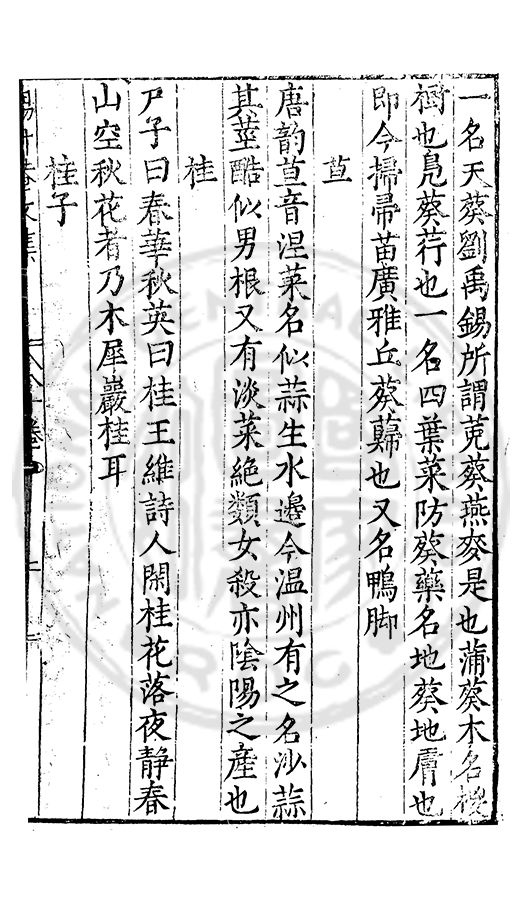 一名天葵劉禹錫所謂莵葵燕麥是也蒲葵木名椶
櫚也鳬葵荇也一名四葉菜防葵藥名地葵地膚也
即今掃帚苗廣雅丘葵蘬也又名鴨脚
苴
唐韵苴音涅菜名似蒜生水邉今温州有之名沙蒜
其莖酷似男根又有淡菜絶類女殺亦陰陽之產也
桂
尸子曰春華秋英曰桂王維詩人閑桂花落夜静春
山空秋花者乃木犀巖桂耳
桂子